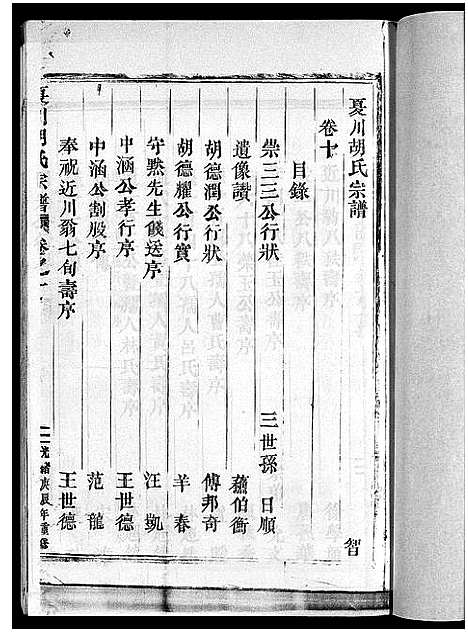 夏川胡氏宗譜 智
卷十
目錄
崇三三公行狀 三世孫 日順
遺像讚 蘇伯衡
胡德潤公行狀 傅邦奇
胡德耀公行實 羊春
守黙先生餞送序 汪凱
中涵公孝行序 王世德
中涵公割股序 范龍
奉祝近川翁七旬壽序 王世德
夏川胡氏宗譜 卷之十 光緒庚辰年重修